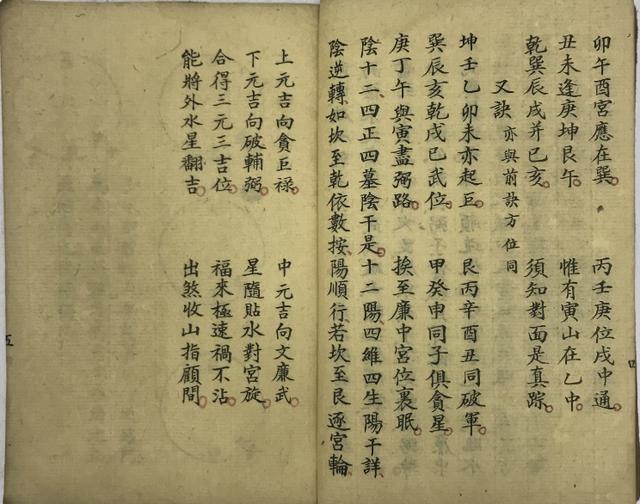 卯午酉宮應在巽 丙壬庚位戌中通
丑未逢庚坤艮午 惟有寅山在乙中
乾巽辰戌并巳亥 須知對面是真踪
又訣 亦與前訣方位同
坤壬乙卯未亦起巨 艮丙辛酉丑同破軍
巽辰亥乾戌巳武位 甲癸申同子俱貪星
庚丁午與寅盡弼路 挨至廉中宮位裏眠
陰十二四正四墓陰干是 十二陽四維四生陽干詳
陰逆轉如坎至乾依數按 陽順行若坎至艮逐宮輪
四
上元吉向貪巨祿 中元吉向文廉武
下元吉向破輔弼 星隨貼水對宮旋
合得三元三吉位 福來極速禍不沾
能將外水星翻吉 出煞收山指顧間
五